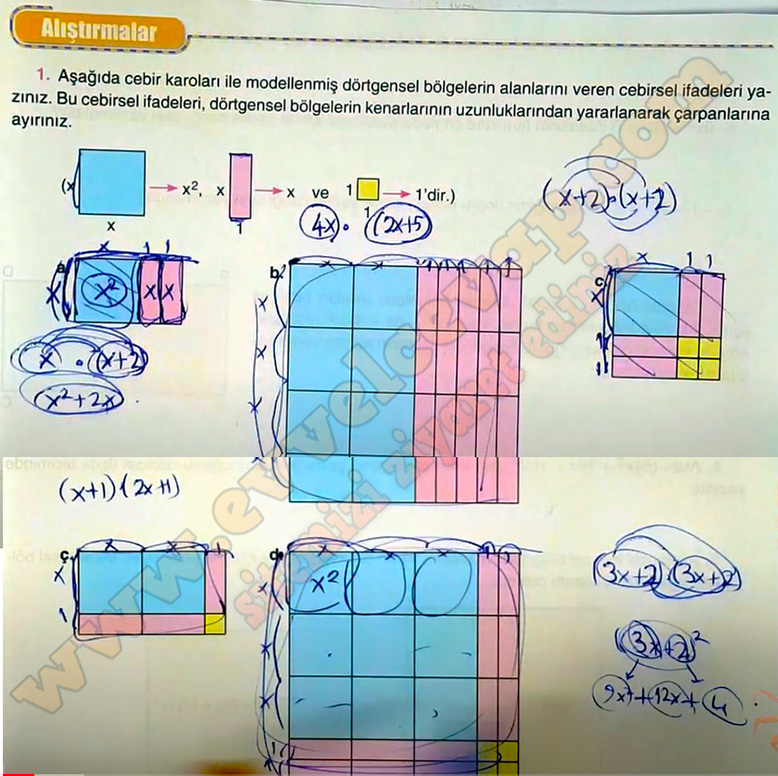 Alıştırmalar
1. Aşağıda cebir karoları ile modellenmiş dörtgensel bölgelerin alanlarını veren cebirsel ifadeleri ya-
zınız. Bu cebirsel ifadeleri, dörtgensel bölgelerin kenarlarının uzunluklarından yararlanarak çarpanlarına
ayırınız.
(x → x², x → x ve 1 → 1'dir.)
x 1 1
4x · (2x+5)
(x+2)·(x+2)
x 1 1
a
x x² x x
x · (x+2)
x²+2x
b
x x 1 1 1 1 1
x
x
x
x
c
x 1 1
x
1
1
(x+1)·(2x+1)
ç
x x 1
x
1
d
x x x 1 1
x x²
x
x
1
1
(3x+2)·(3x+2)
(3x+2)²
9x²+12x+4
www.evvelcevap.com
sitemizi ziyaret ediniz